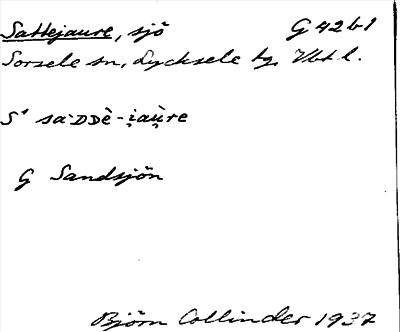 Sattejaure, sjö G 42 b 1
Sorsele sn, Lycksele tg, Vbt l.
S¹ sa·ᴅᴅè-i̯au̯re
G Sandsjön
Björn Collinder 1937